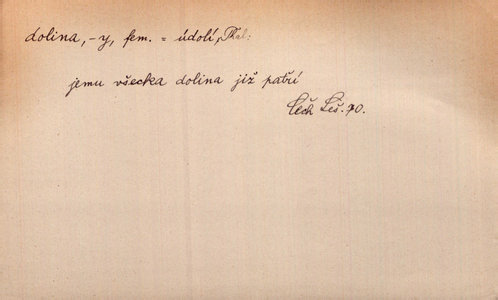 dolina, -y, fem. = údolí,
jemu všecka dolina již patří
Čech Leš. 70.